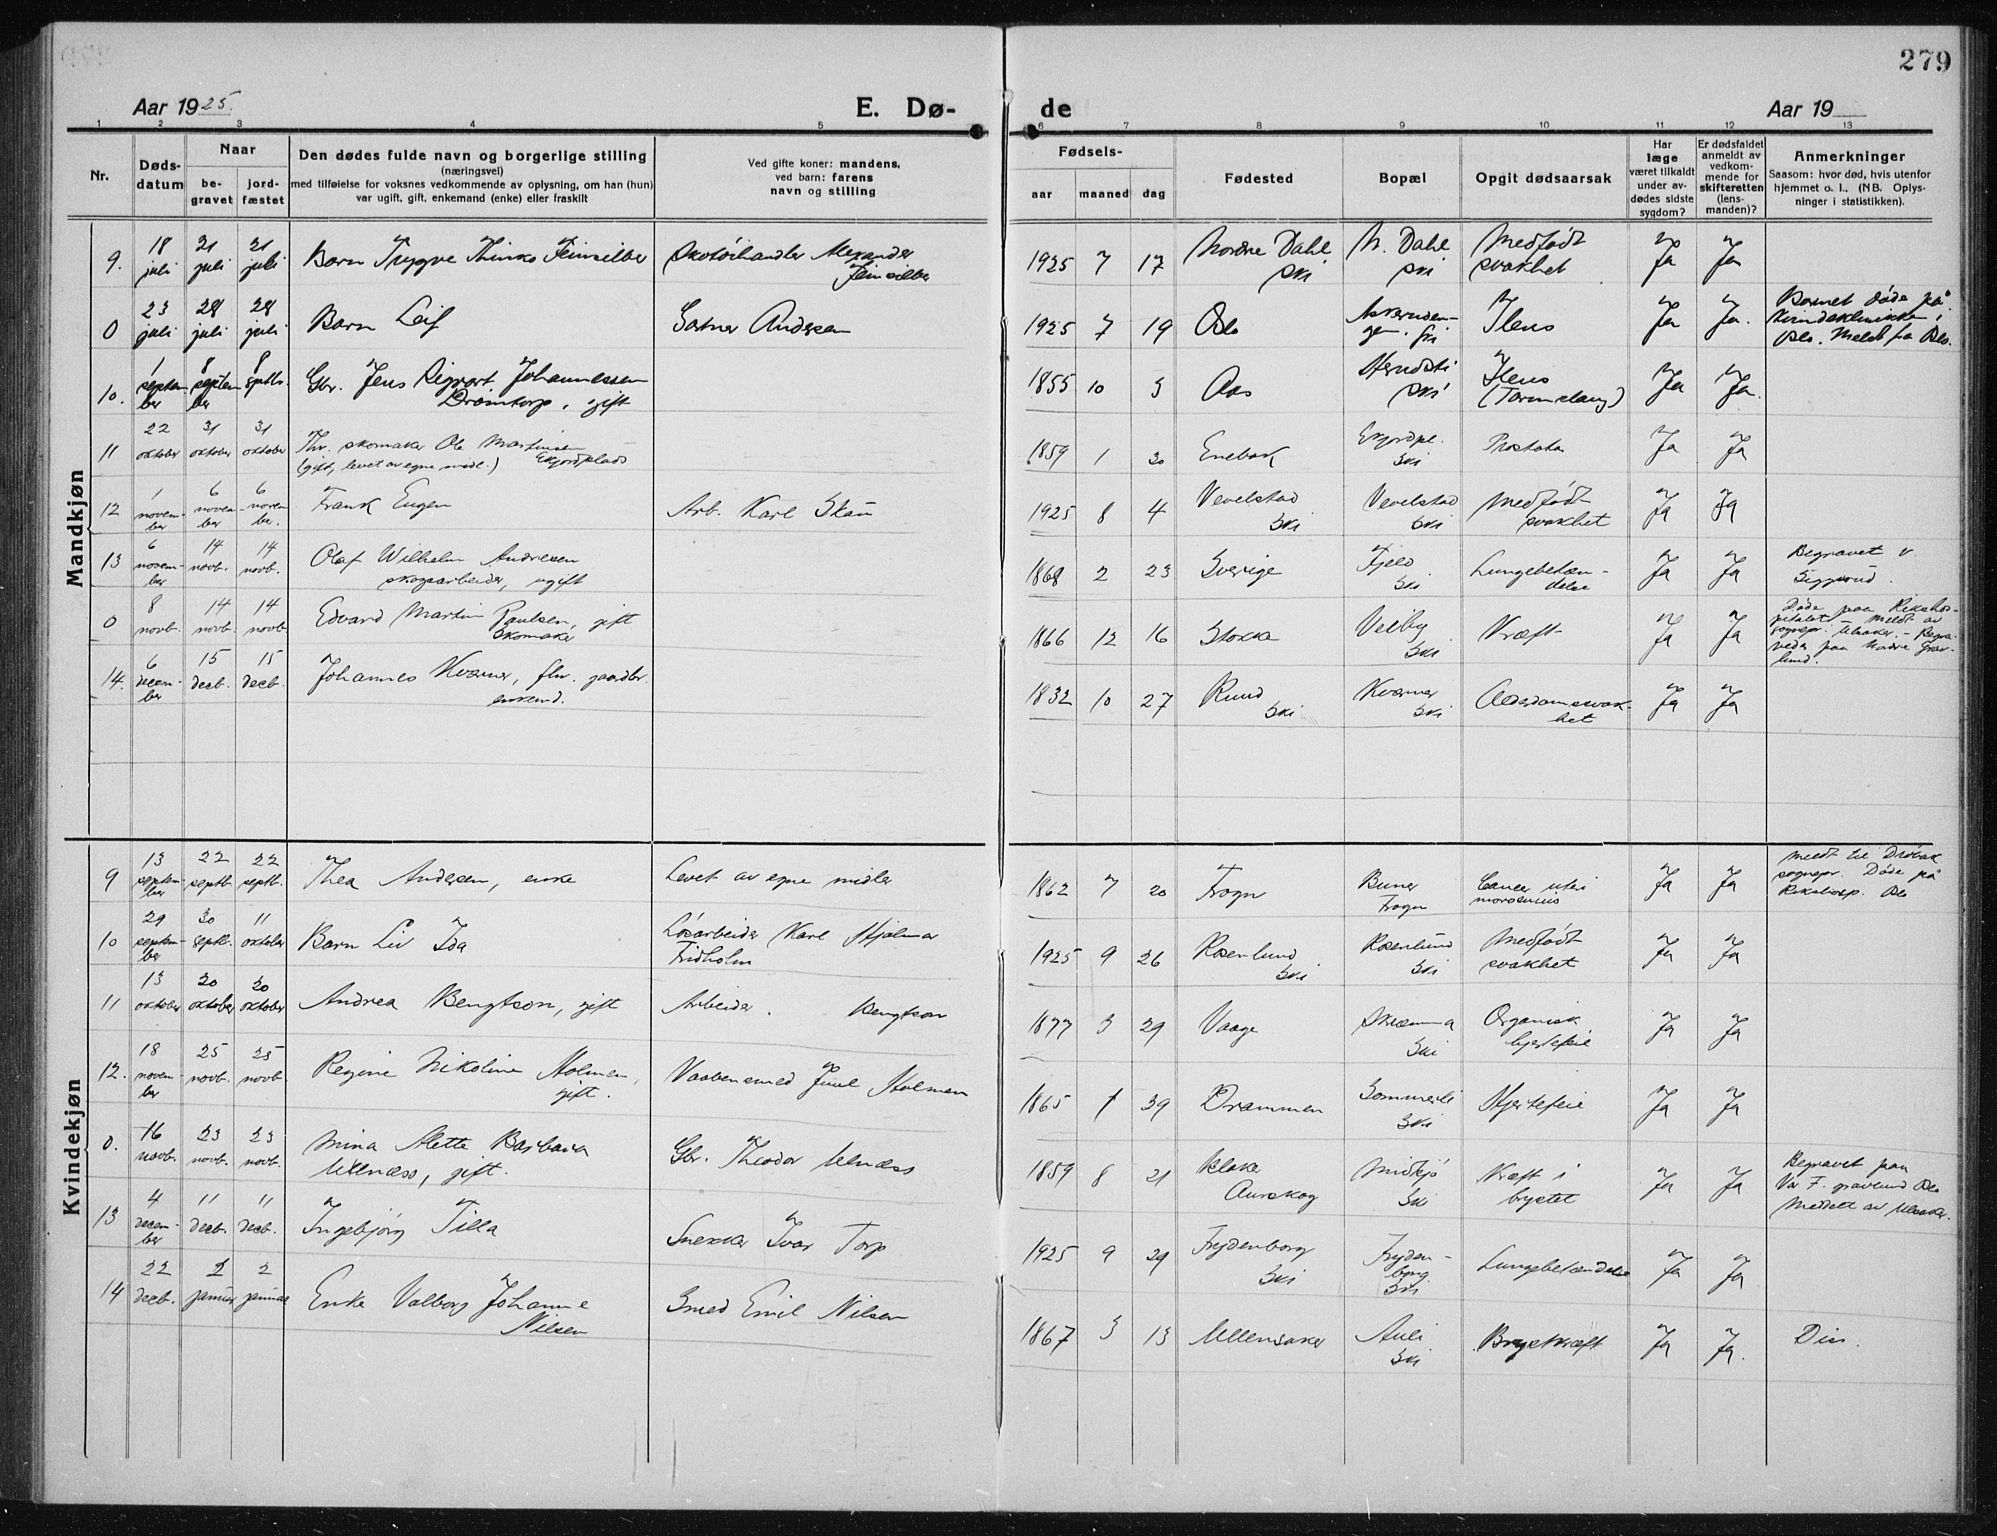 279
Aar 1925.
E. Dø-
de
Aar 19
1 2 3 4 5 6 7 8 9 10 11 12 13
Nr.
Døds-
datum
Naar
be-
gravet
jord-
fæstet
Den dødes fulde navn og borgerlige stilling
(næringsvei)
med tilføielse for voksnes vedkommende av oplysning, om han (hun)
var ugift, gift, enkemand (enke) eller fraskilt
Ved gifte koner: mandens,
ved barn: farens
navn og stilling
Fødsels-
aar maaned dag
Fødested
Bopæl
Opgit dødsaarsak
Har
læge
været tilkaldt
under av-
dødes sidste
sygdom?
Er dødsfaldet
anmeldt av
vedkom-
mende for
skifteretten
(lens-
manden)?
Anmerkninger
Saasom: hvor død, hvis utenfor
hjemmet o. l., (NB. Oplys-
ninger i statistikken).
Mandkjøn
9. 18 juli 21 juli 21 juli Barn Trygve Feinsilber Skotøihandler Alexander
Feinsilber
1925 7 17 Nordre Dahl
Ski
N. Dahl
Ski
Medfødt
svakhet
Ja Ja
0 23 juli 28 juli 28 juli Barn Leif Andersen
1925 7 19 Oslo Ileus Ja Ja.
Barnet døde på
Kvindeklinikken i
Oslo. Meldt fra Oslo.
10. 1 septem-
ber 8 septem-
ber 8 septb. Gbr. Jens Sigvart Johannessen
Drømtorp, gift
1855 10 3 Aas
Ski
Ileus
(Tarmslang)
Ja Ja.
11 22 oktober 31 oktober 31 oktober Fhv. skomaker Ole Martinsen
Ekjordplads
(gift, levet av egne midl.)
1859 1 30 Enebak Ekjordpl.
Ski
Prostata Ja Ja
12 1 novem-
ber 6 novem-
ber 6 novem-
ber. Frank Eugen Arb. Karl Skau
1925 8 4 Vevelstad
Ski
Vevelstad
Ski
Medfødt
svakhet
Ja Ja
13 6 novem-
ber 14 novb. 14 novb. Olaf Wilhelm Andresen
skogsarbeider, ugift
1868 2 23 Sverige Fjeld
Ski
Lungebetæn-
delse
Ja Ja
Begravet v.
Siggerud.
0 8 novb. 14 novb. 14 novb. Edvard Martin Paulsen, gift
Skomaker
1866 12 16 Stokka Veiby
Ski
Kræft Ja Ja
Døde paa Rikshos-
pitalet. Meldt av
sognepr. Ulsaker. - Begra-
vedes paa Nordre Grav-
lund.
14. 6 decem-
ber 15 decb. 15 decb. Johannes Kværner, fhv. gaardbr.
enkemd.
1832 10 27 Ruud
Ski
Kværner
Ski
Alderdomssvak-
het
Ja Ja
Kvindekjøn
9 13 septem-
ber 22 septb. 22 septb. Thea Andersen, enke Levet av egne midler
1862 7 20 Frogn Buner
Frogn
Cancer uteri
Ja Ja
Meldt til Drøbak
sognepr. Døde på
Rikshosp. Oslo
10 29 septem-
ber 30 septb. 11 oktober Barn Liv Ida Løsarbeider Karl Hjalmar
Fridholm
1925 9 26 Rosenlund
Ski
Rosenlund
Ski
Medfødt
svakhet
Ja Ja
11 13 oktober 20 oktober 20 oktober Andrea Bengtson, gift Arbeider. Bengtson
1877 3 29 Vaage
Ski
Organisk
hjertefeil
Ja Ja
12. 18 novem-
ber 25 novb. 25 novb. Regine Nikoline Holmen,
gift.
Vaabensmed Juul Holmen
1865 1 39 Drammen Sommerli
Ski
Hjertefeil Ja Ja
0. 16 novb. 23 novb. 23 novb. Mina Alette Barbara
Ullnæss, gift.
Gbr. Theodor Ulnæss
1859 8 21
Aurskog
Midsjø
Ski
Kræft i
brystet
Ja Ja
Begravet paa
Vår F. gravlund Oslo
Meddelt av Ulsaker.
13 4 decem-
ber 11 decb. 11 decb. Ingebjørg Tilla Snekker Ivar Torp
1925 9 29 Frydenborg
Ski
Fryden-
borg.
Ski
Lungebetændelse Ja Ja
14 22 decb. 2 januar 2 januar Enke Valborg Johanne
Nilsen
Smed Emil Nilsen
1867 3 13 Ullensaker Auli
Ski
Brystkræft Ja Ja.